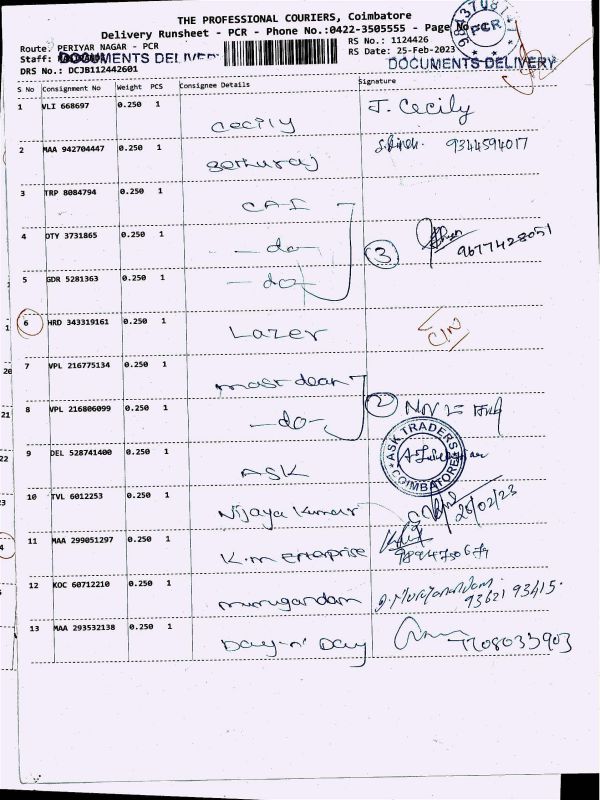 THE PROFESSIONAL COURIERS, Coimbatore
Delivery Runsheet - PCR - Phone No.:0422-3505555 - Page No
Route: PERIYAR NAGAR - PCR RS No.: 1124426
Staff: DOCUMENTS DELIVERY RS Date: 25-Feb-2023
DRS No.: DCJB112442601 DOCUMENTS DELIVERY
PCR
S No Consignment No Weight PCS Consignee Details Signature
1 VLI 668697 0.250 1 cecily J. Cecily
2 MAA 942704447 0.250 1 9344594017
3 TRP 8084794 0.250 1 CAI
4 DTY 3731865 0.250 1 - do - 3 9677428051
5 GDR 5281363 0.250 1 - do -
6 HRD 343319161 0.250 1 Lazer
7 VPL 216775134 0.250 1
8 VPL 216806099 0.250 1 - do - 2
9 DEL 528741400 0.250 1 ASK ASK TRADERS COIMBATORE
10 TVL 6012253 0.250 1 Vijaya Kumar
11 MAA 299051297 0.250 1 K.m Enterprise
12 KOC 60712210 0.250 1 murugandam 93621 93415.
13 MAA 293532138 0.250 1 Day-n' Day 7708033903